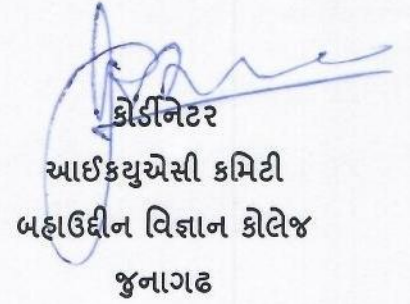 કોર્ડીનેટર
આઈક્યુએસી કમિટી
બહાઉદ્દીન વિજ્ઞાન કોલેજ
જુનાગઢ